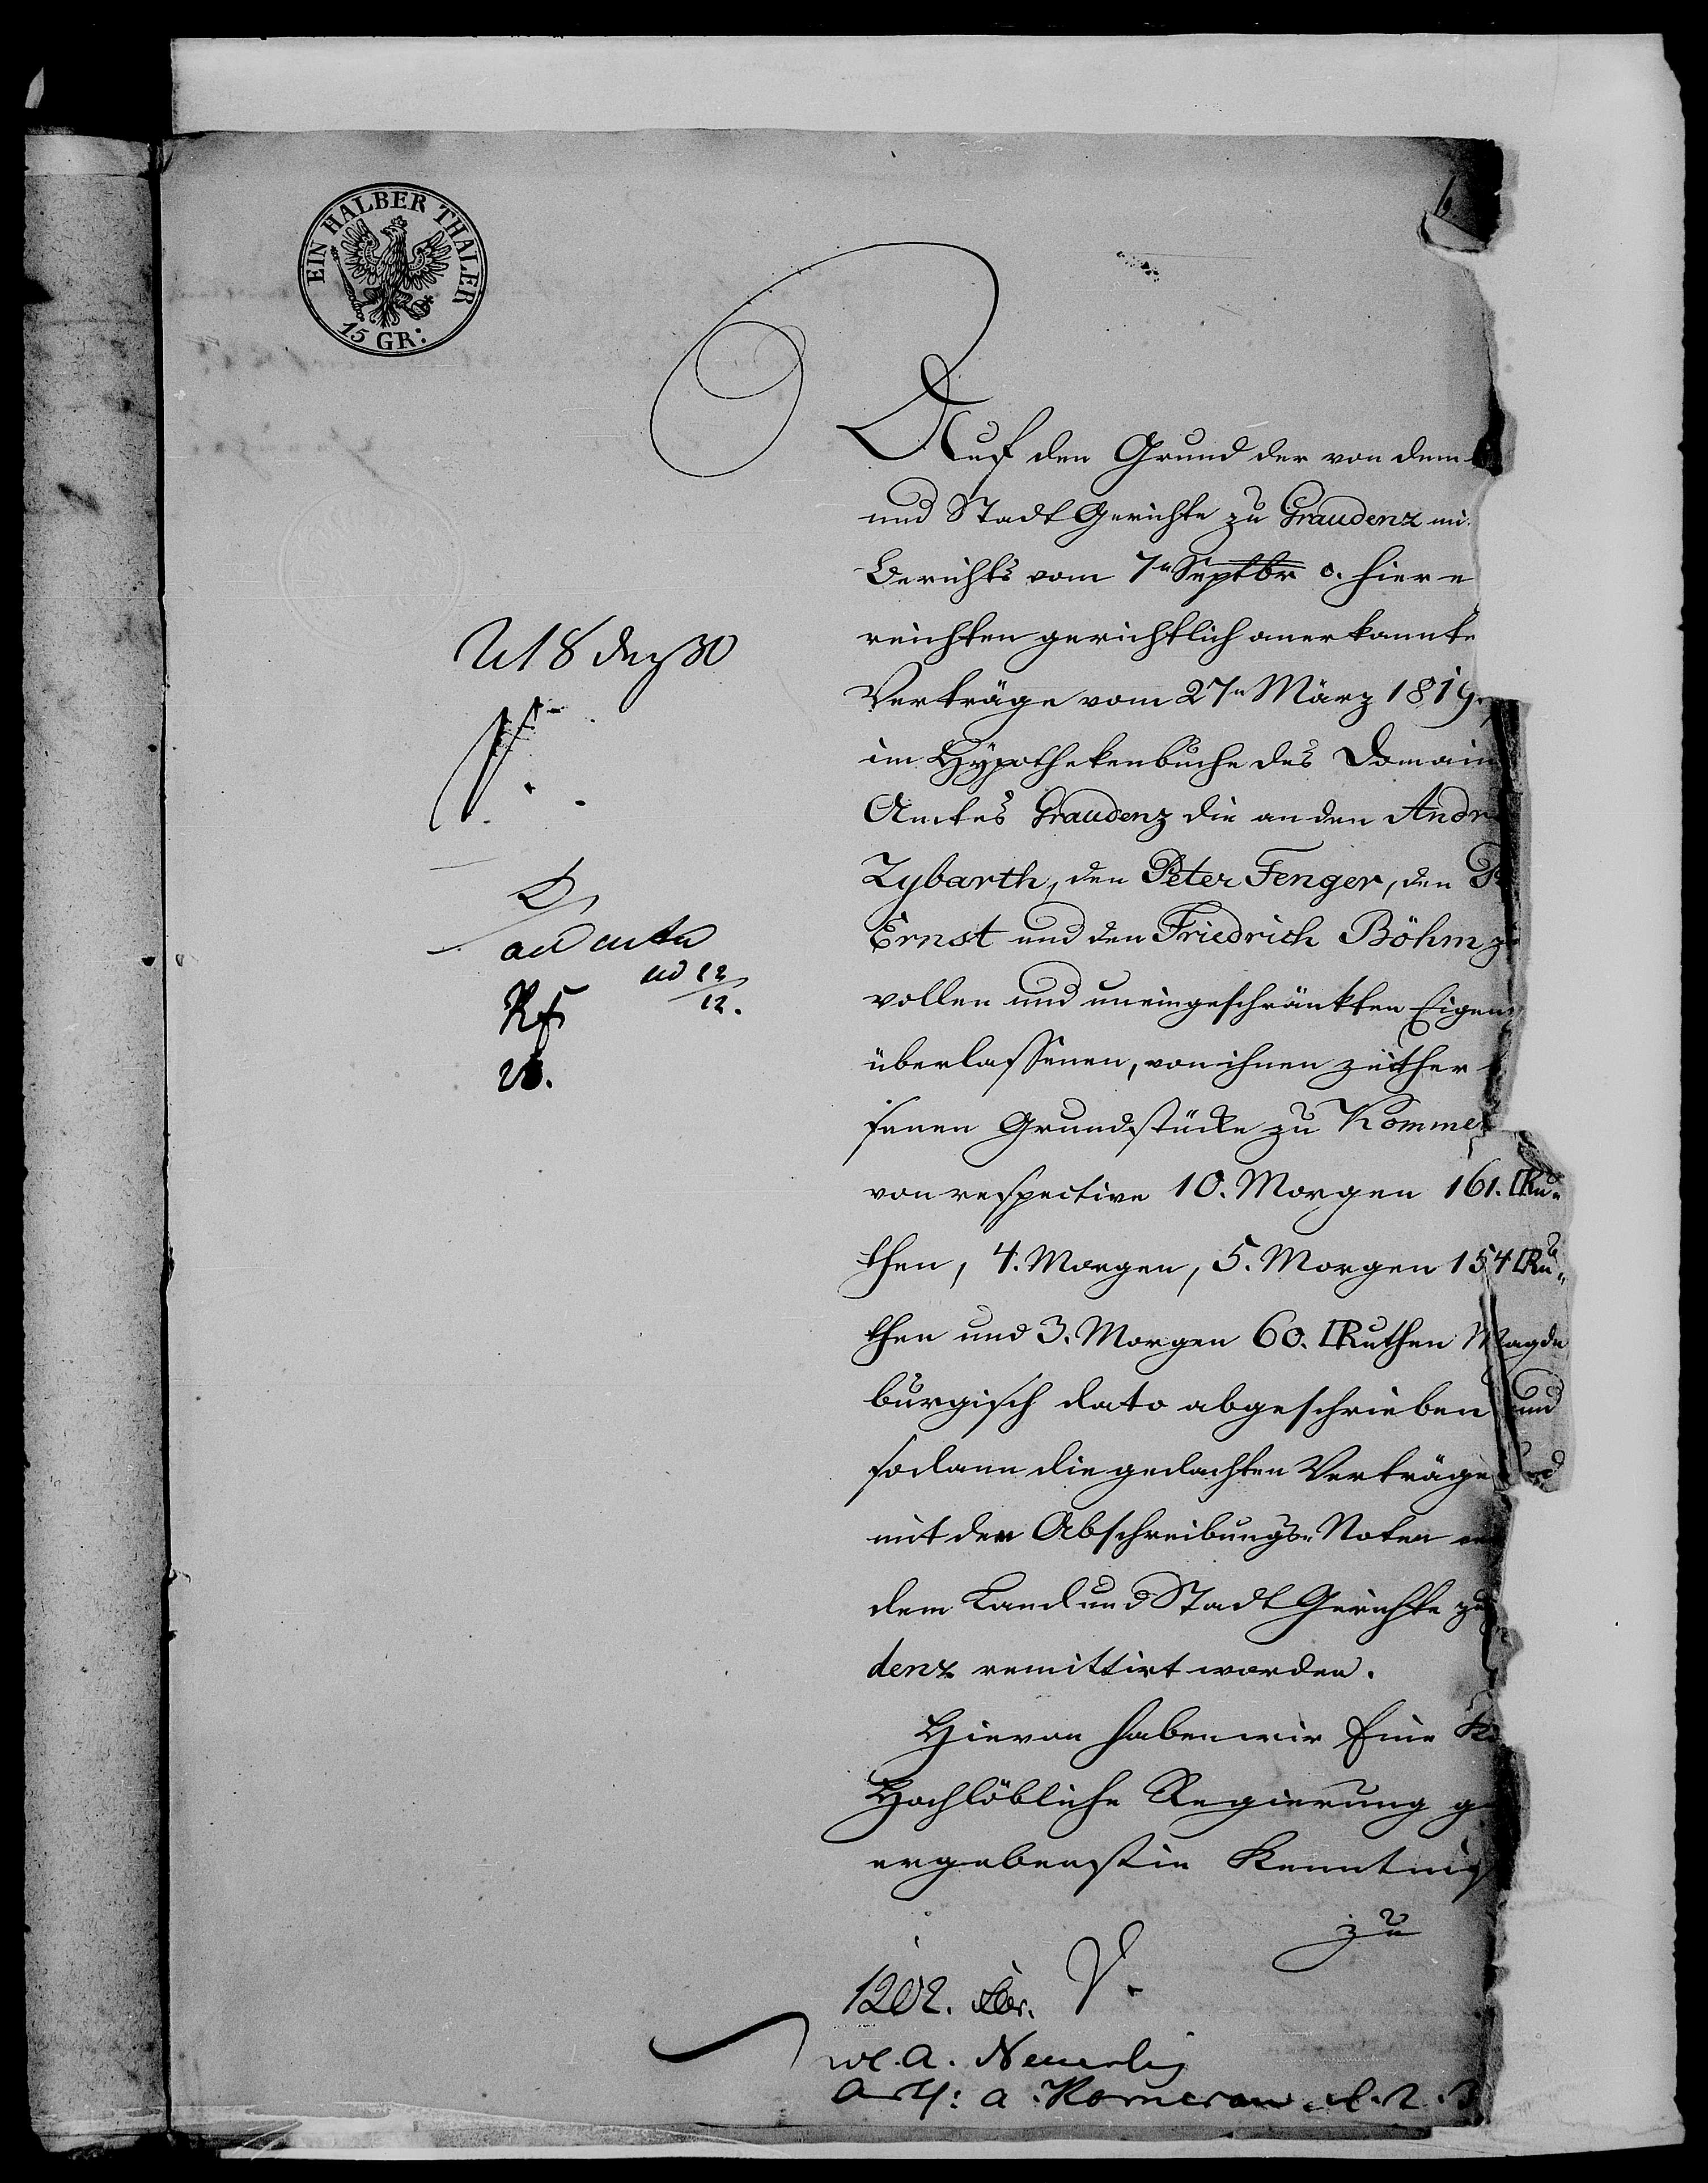 EIN HALBER THALER
15 GR:
Auf den Grund der von dem
und Stadt Gerichte zu Graudenz mi
Berichts vom 7n Septbr c. hier e
reichten gerichtlich anerkannte
Verträge vom 27n März 1819.
im Hypothekenbuche des Domain
Amtes Graudenz die an den Andr
Zybarth, den Peter Fenger, den
Ernst und den Friedrich Böhm z
vollen und uneingeschränkten Eigen
überlassenen, von ihnen zeither
senen Grundstücke zu Komme
von respective 10. Morgen 161. □Ru-
then, 4. Morgen, 5. Morgen 154 □Ru-
then und 3. Morgen 60. □Ruthen Magde
burgisch dato abgeschrieben und
sodann die gedachten Verträge
mit den Abschreibungs-Noten
dem Land und Stadt Gerichte zu
denz remittirt worden.
Hievon haben wir Eine K
Hochlöbliche Regierung g
ergebenst in Kenntniß
zu
18 dez 30
ad acta
ad 12/12.
1202.